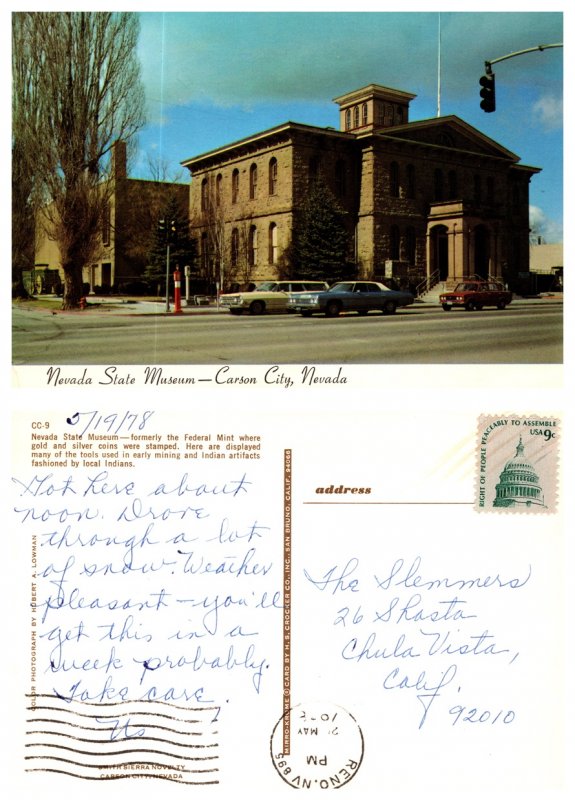 Nevada State Museum — Carson City, Nevada
CC-9
5/19/78
Nevada State Museum—formerly the Federal Mint where
gold and silver coins were stamped. Here are displayed
many of the tools used in early mining and Indian artifacts
fashioned by local Indians.
Got here about
noon. Drove
through a lot
of snow. Weather
pleasant – you'll
get this in a
week probably.
Take care.
Us
COLOR PHOTOGRAPH BY HUBERT A. LOWMAN
SMITH SIERRA NOVELTY
CARSON CITY, NEVADA
MIRRO-KROME ® CARD BY H. S. CROCKER CO., INC., SAN BRUNO, CALIF. 94066
RIGHT OF PEOPLE PEACEABLY TO ASSEMBLE
USA 9c
address
The Slemmers
26 Shasta
Chula Vista,
Calif.
92010
RENO, NV 895
PM
MAY